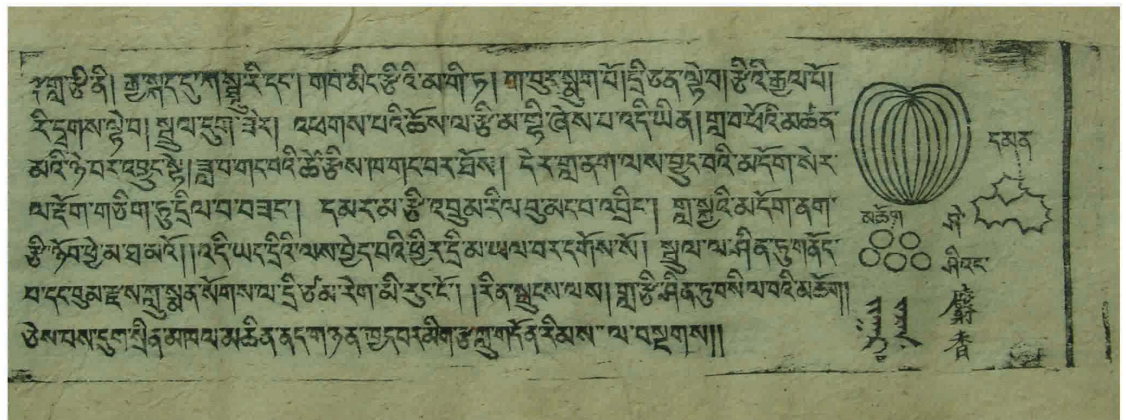 ༈གླ་རྩི་ནི། རྒྱ་སྐད་དུ་ཀ་སྟཱུ་རི་དང་། གབ་མིང་རྩི་འི་མ་གི་ཏ། གླ་བྱུར་སྨུག་པོ།དྲི་ཅན་ལྟེ་བ།རྩི་འི་རྒྱལ་པོ།
རི་དྭགས་ལྟེ་བ། སྦྲུལ་དུག་ཟེར། འཕགས་པའི་ཆོས་ལ་རྩི་མ་གླི་ཞེས་པ་འདི་ཡིན།གླ་བ་ཕོའི་མཚན་
མའི་ཉེ་བར་འབྱུང་སྟེ།ཟླ་བ་གང་བའི་ཚེ་རྩིས་ཁ་གང་བར་ཐོས། དེར་གླ་ནག་ལས་བྱུང་བའི་མདོག་སེར་
ལ་རྡོག་གཅིག་ཏུ་དྲིལ་བ་བཟང་། དམར་མ་རྩི་འབྲུམ་རིལ་བུ་མང་བ་འབྲིང་། གླ་སྐྱའི་མདོག་ནག་
རྩི་ཉོབ་ཕྱེ་མ་ཐ་མའོ།།འདི་ཡང་དྲིའི་ལས་བྱེད་པའི་ཕྱིར་དྲི་མ་ཡལ་བར་དགོས་སོ། སྦྲུལ་ལ་ཤིན་ཏུ་གནོད་
བ་དང་བུམ་རྫས་ཀླུ་སྨན་སོགས་ལ་དྲི་ཙམ་རེག་མི་རུང་ངོ་།།རིན་སྤུངས་ལས།གླ་རྩི་ཤིན་ཏུ་བསིལ་བའི་མཆོག།
ཅེས་པས་དུག་སྲིན་མཁལ་མཆིན་ནད་གཉན་ཁྱད་པར་མིག་རྩ་ཀླུ་གདོན་རིམས་ལ་བསྔགས།།
དམན
མཆོག
麝
香